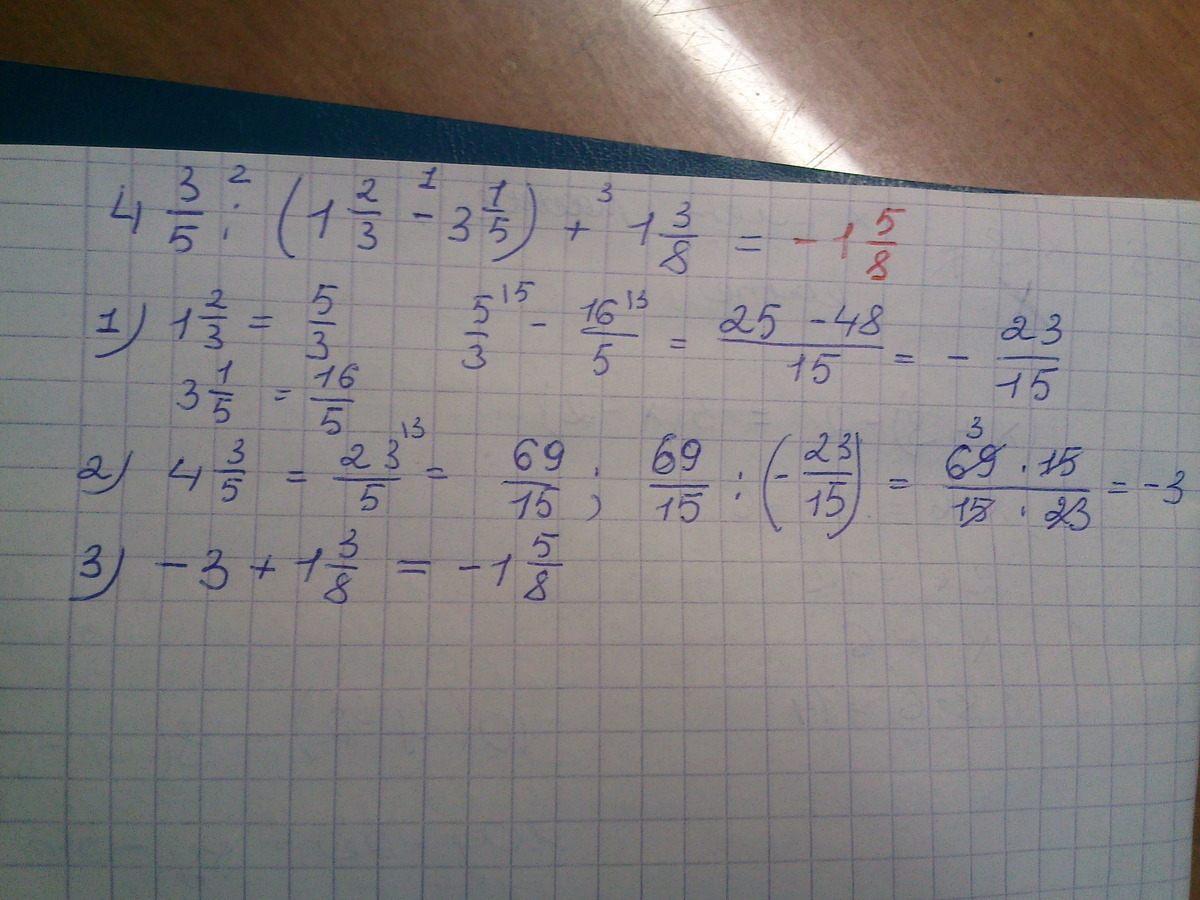 4 3/5 :² (1 2/3 -¹ 3 1/5) +³ 1 3/8 = -1 5/8
1) 1 2/3 = 5/3   5/3 ⁾⁵ - 16/5 ⁾³ = (25 - 48)/15 = - 23/15
3 1/5 = 16/5
2) 4 3/5 = 23/5 ⁾³ = 69/15 ; 69/15 : (- 23/15) = (69³ · 15)/(15 · 23) = -3
3) -3 + 1 3/8 = -1 5/8